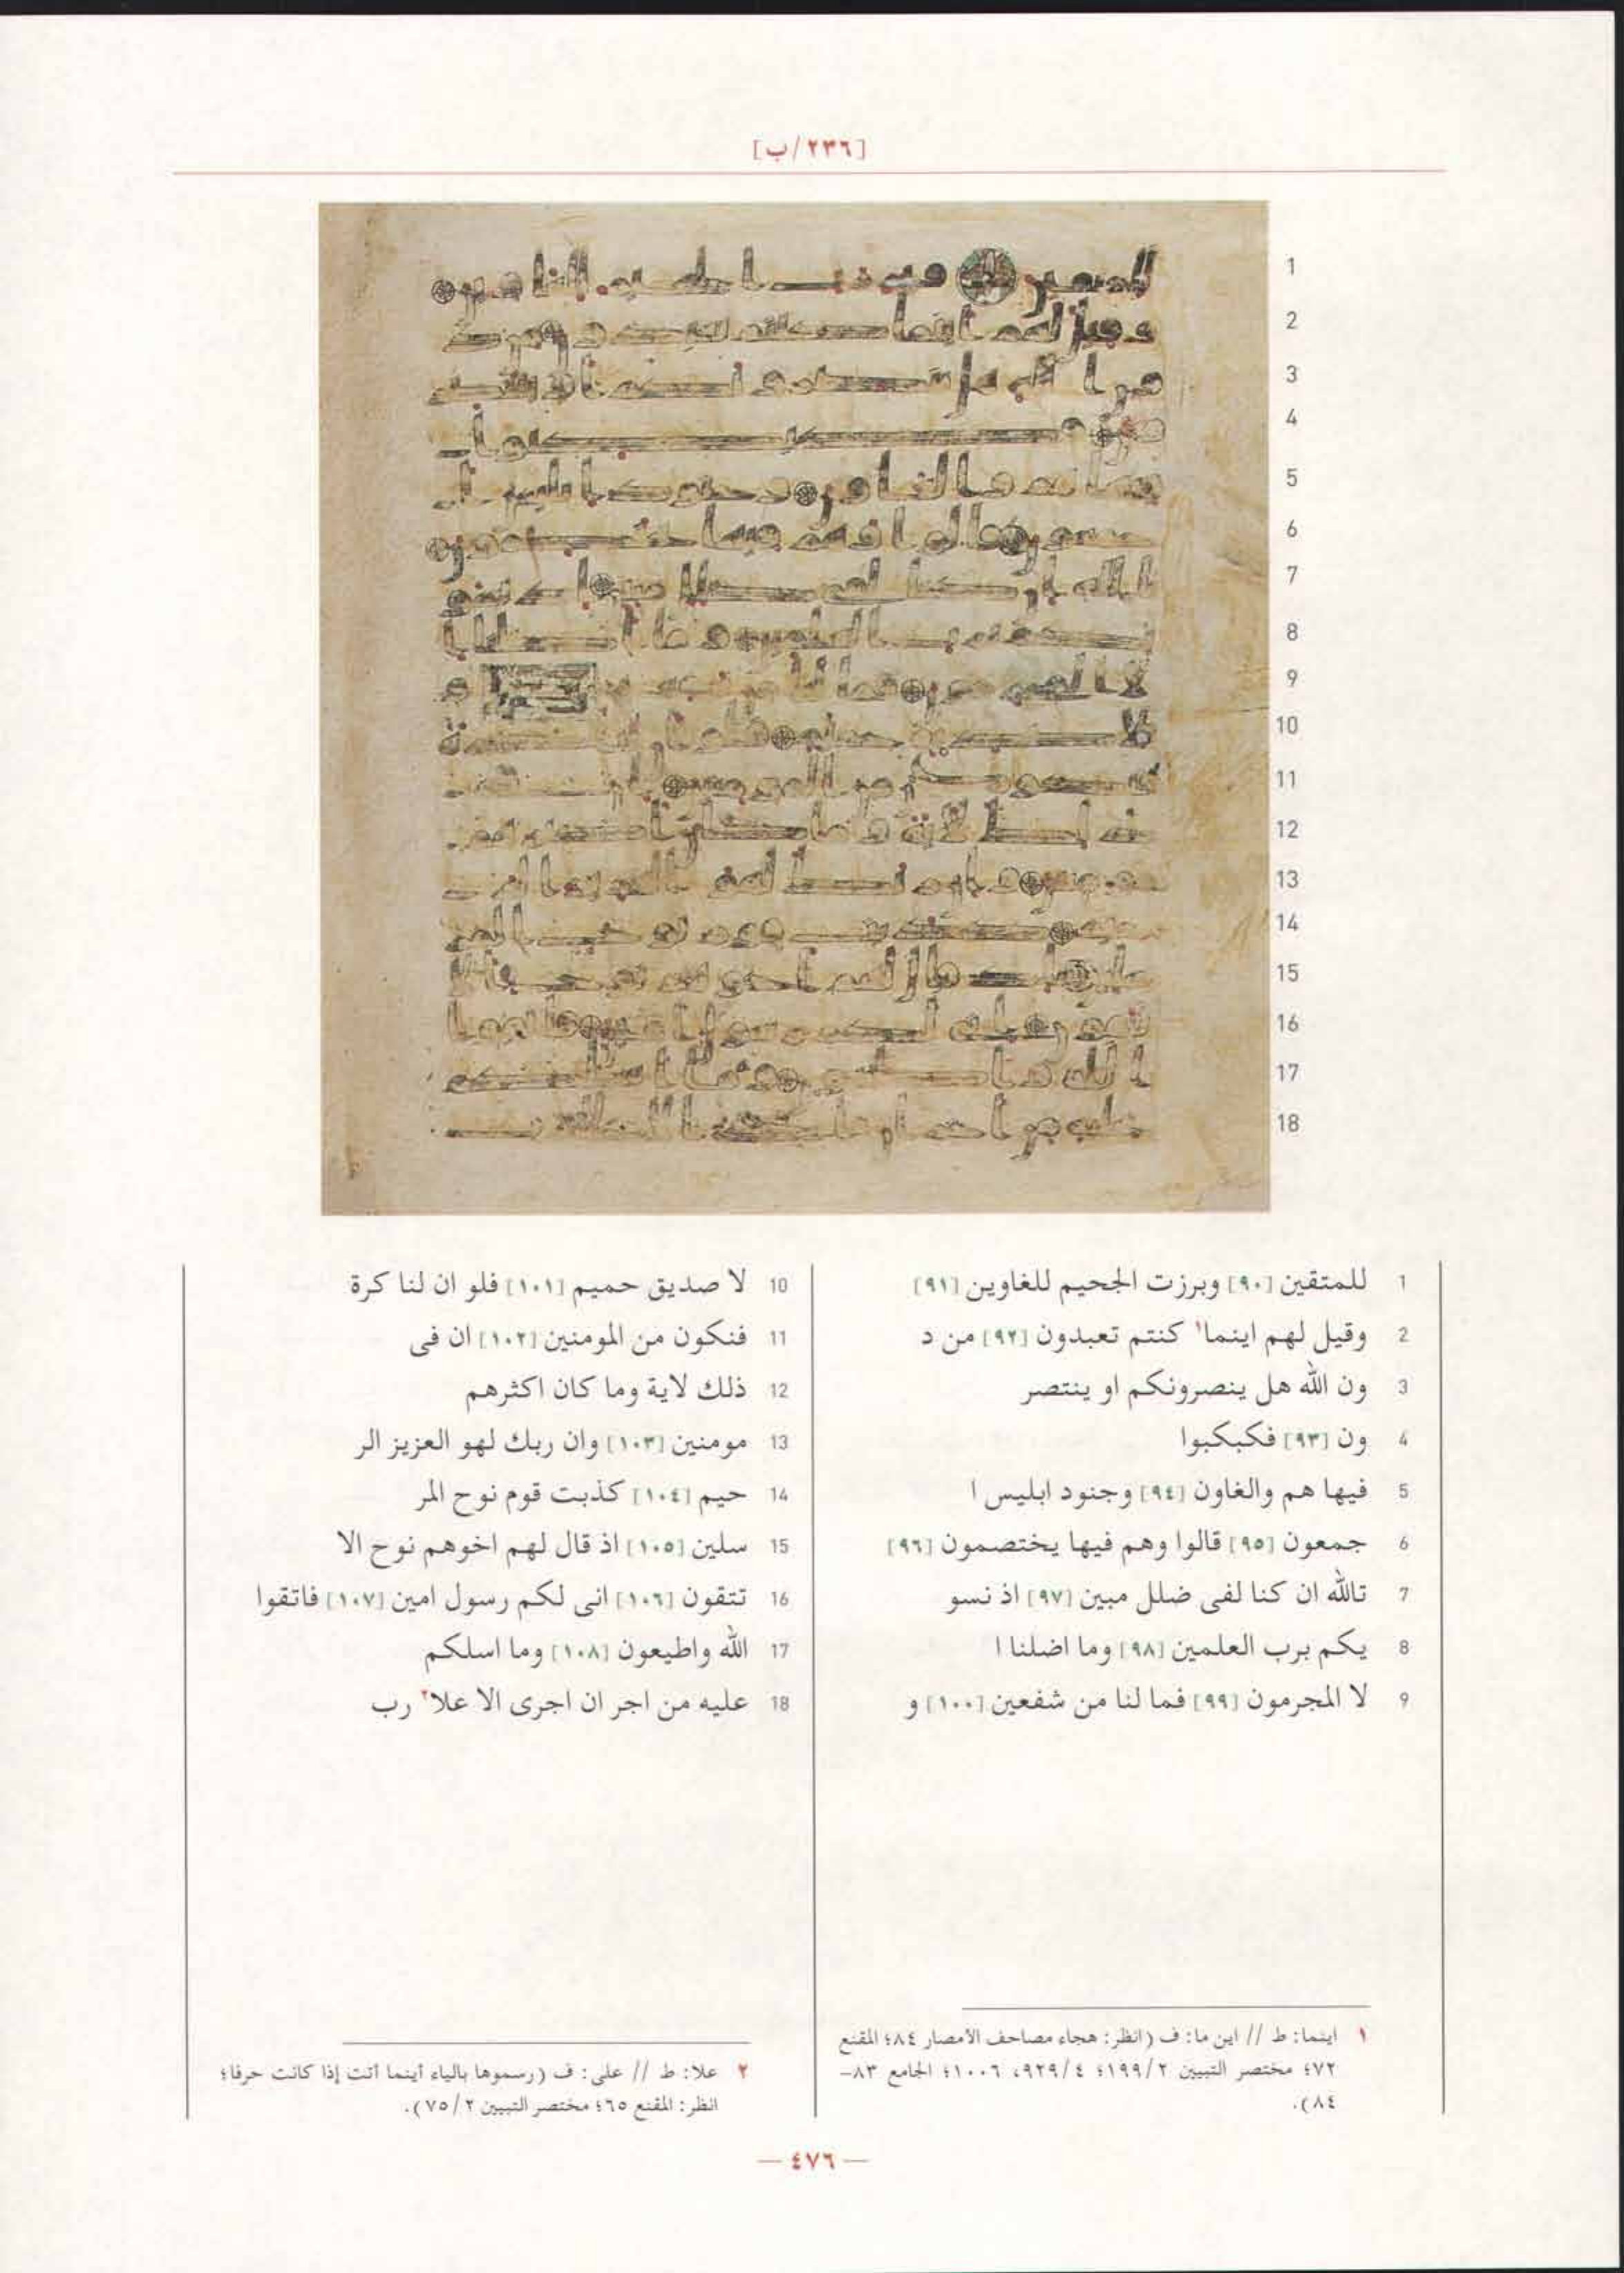 [٢٣٦/ب]
1 للمتقين [٩٠] وبرزت الجحيم للغاوين [٩١]
2 وقيل لهم اينما١ كنتم تعبدون [٩٢] من د
3 ون الله هل ينصرونكم او ينتصر
4 ون [٩٣] فكبكبوا
5 فيها هم والغاون [٩٤] وجنود ابليس ا
6 جمعون [٩٥] قالوا وهم فيها يختصمون [٩٦]
7 تالله ان كنا لفى ضلل مبين [٩٧] اذ نسو
8 يكم برب العلمين [٩٨] وما اضلنا ا
9 لا المجرمون [٩٩] فما لنا من شفعين [١٠٠] و
10 لا صديق حميم [١٠١] فلو ان لنا كرة
11 فنكون من المومنين [١٠٢] ان فى
12 ذلك لاية وما كان اكثرهم
13 مومنين [١٠٣] وان ربك لهو العزيز الر
14 حيم [١٠٤] كذبت قوم نوح المر
15 سلين [١٠٥] اذ قال لهم اخوهم نوح الا
16 تتقون [١٠٦] انى لكم رسول امين [١٠٧] فاتقوا
17 الله واطيعون [١٠٨] وما اسلكم
18 عليه من اجر ان اجرى الا علا٢ رب
١ اينما: ط // اين ما: ف (انظر: هجاء مصاحف الأمصار ٨٤؛ المقنع
٧٢؛ مختصر التبيين ١٩٩/٢؛ ٩٢٩/٤، ١٠٠٦؛ الجامع ٨٣–
٨٤).
٢ علا: ط // على: ف (رسموها بالياء أينما أتت إذا كانت حرفا؛
انظر: المقنع ٦٥؛ مختصر التبيين ٧٥/٢).
— ٤٧٦ —